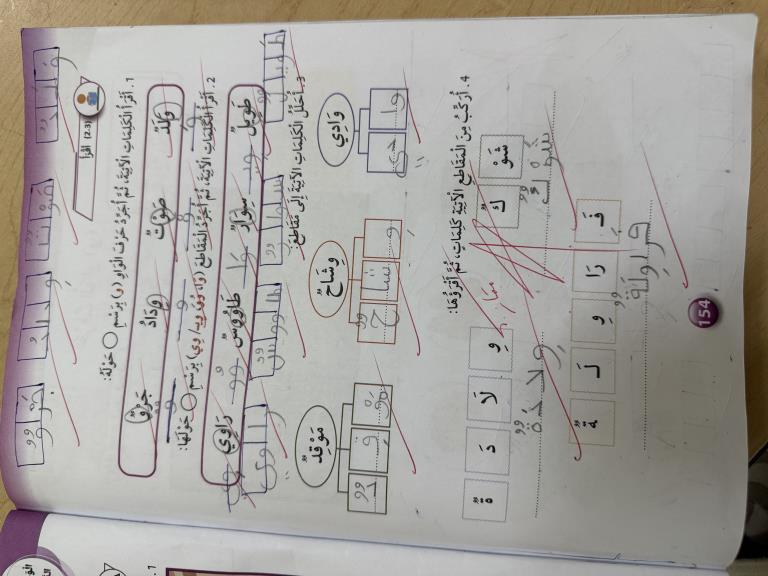 اقْرَأْ (2.3)
1. أَقْرَأُ الْكَلِمَاتِ الْآتِيَةَ، ثُمَّ أُجَرِّدُ حَرْفَ الْوَاوِ (و) بِرَسْمِ ○ حَوْلَهُ:
وَلَدٌ صَوْتٌ وِدَادُ جَرْوٌ
2. أَقْرَأُ الْكَلِمَاتِ الْآتِيَةَ، ثُمَّ أُجَرِّدُ الْمَقَاطِعَ بِرَسْمِ ○ حَوْلَهَا:
طَوِيلٌ سِوَارٌ طَاوُوسٌ رَاوِي
3. أُحَلِّلُ الْكَلِمَاتِ الْآتِيَةَ إِلَى مَقَاطِعَ:
وَادِي وِشَاحٌ مَوْقِدٌ
وا دي
وِ شا حٌ
مَوْ قِ دٌ
4. أُرَكِّبُ مِنَ الْمَقَاطِعِ الْآتِيَةِ كَلِمَاتٍ، ثُمَّ أَقْرَؤُهَا:
شَوْ كٌ
شوك
وِ لَا دَ ةٌ
ولادة
فَ رَا وِ لَ ةٌ
فراولة
154